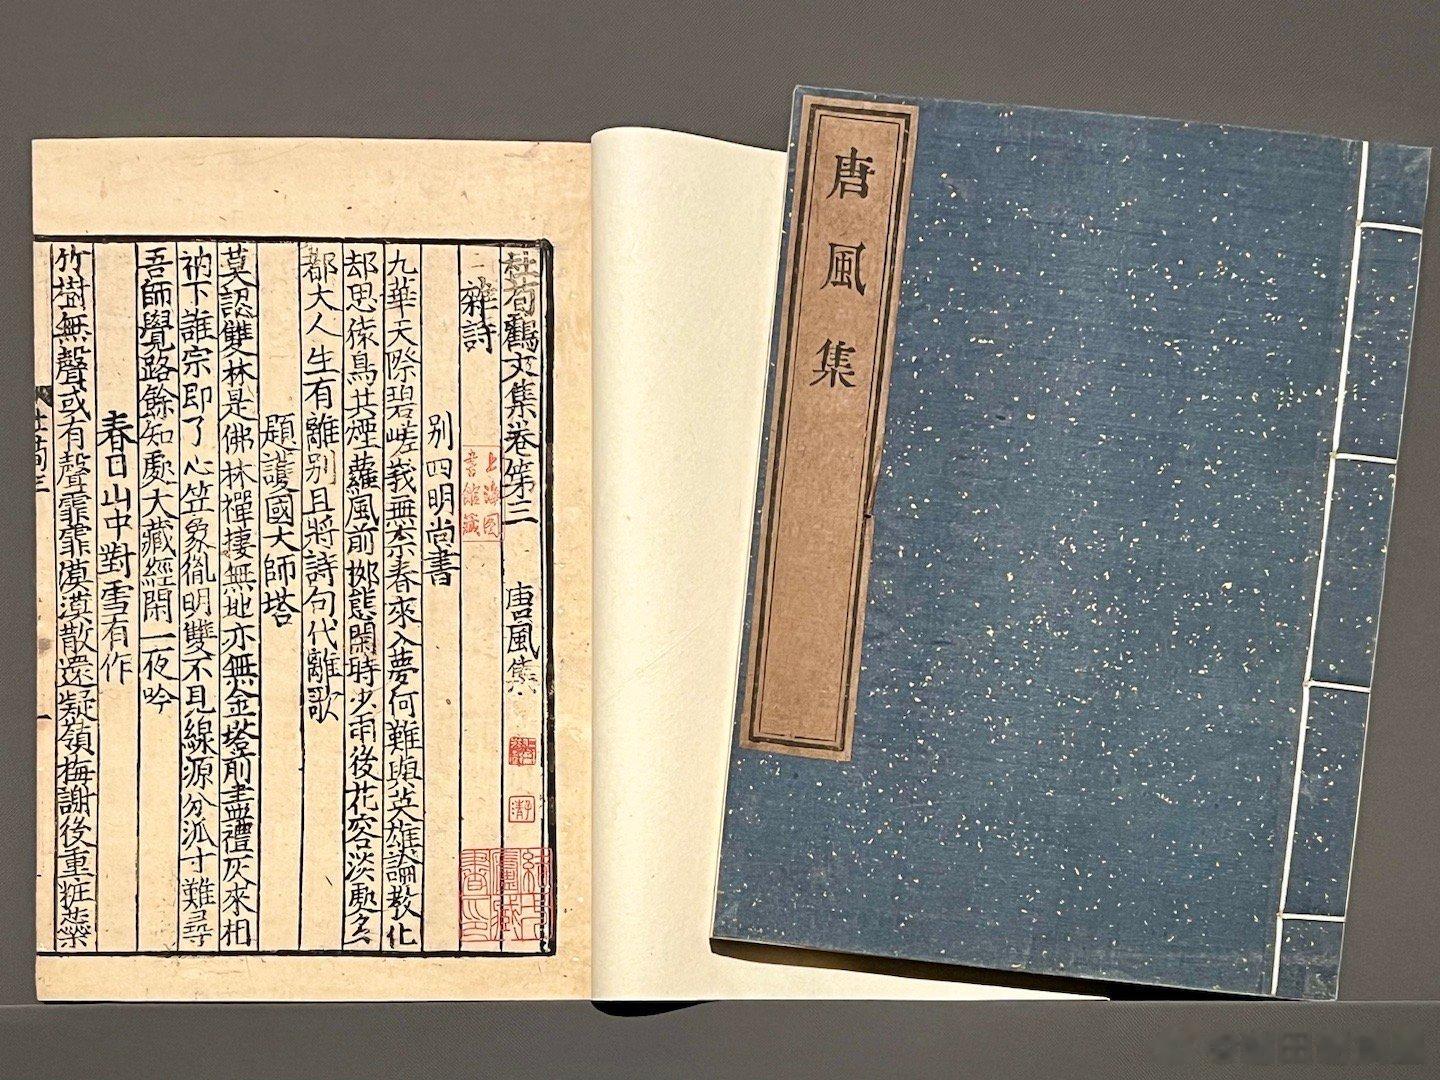 唐風集
杜荀鶴文集卷第三 唐風集
雜詩
別四明尚書
九華天際碧嵯峩無柰春來入夢何難與英雄論教化
却思猿鳥共煙蘿風前栁態閑時少雨後花容淡處多
都大人生有離別且將詩句代離歌
題護國大師塔
莫認雙林是佛林禪棲無地亦無金塔前盡禮灰來相
衲下誰宗即了心笠象胤明雙不見線源分派寸難尋
吾師覺路餘知處大藏經閑一夜吟
春日山中對雪有作
竹樹無聲或有聲霏霏漠漠散還凝嶺梅謝後重粧蘂
上海圖
書館藏